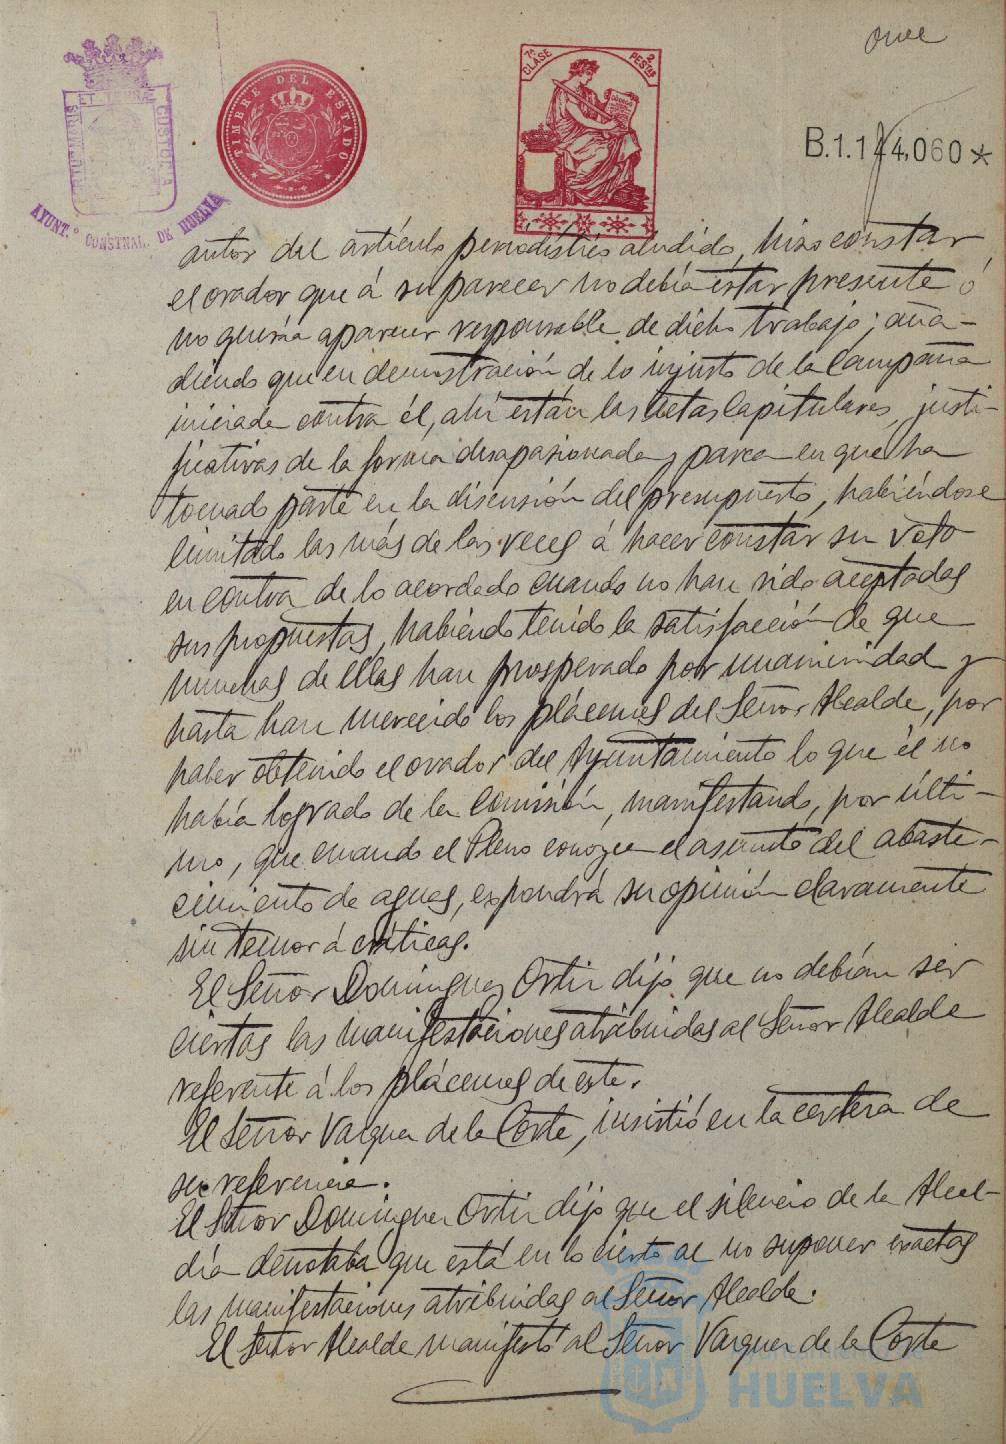 once
TIMBRE DEL ESTADO
7ª CLASE 2 PESETAS
B.1.144,060 *
AYUNT.º CONSTNAL. DE HUELVA
autor del artículo periodístico aludido, hizo constar
el orador que á su parecer no debía estar presente ó
no quería aparecer responsable de dicho trabajo; aña-
diendo que en demostración de lo injusto de la campaña
iniciada contra él, ahí están las Actas Capitulares, justi-
ficativas de la forma desapasionada y parca en que ha
tomado parte en la discusión del presupuesto, habiéndose
limitado las más de las veces á hacer constar su voto
en contra de lo acordado cuando no han sido aceptadas
sus propuestas, habiendo tenido la satisfacción de que
muchas de ellas han prosperado por unanimidad y
hasta han merecido los plácemes del Señor Alcalde, por
haber obtenido el orador del Ayuntamiento lo que él no
había logrado de la Comisión, manifestando, por últi-
mo, que cuando el Pleno conozca el asunto del abaste-
cimiento de aguas, expondrá su opinión claramente
sin temor á críticas.
El Señor Dominguez Ortiz dijo que no debían ser
ciertas las manifestaciones atribuidas al Señor Alcalde
referente á los plácemes de este.
El Señor Vazquez de la Corte, insistió en la certeza de
su referencia.
El Señor Dominguez Ortiz dijo que el silencio de la Alcal-
día denotaba que está en lo cierto al no suponer exactas
las manifestaciones atribuidas al Señor Alcalde.
El Señor Alcalde manifestó al Señor Vazquez de la Corte
HUELVA